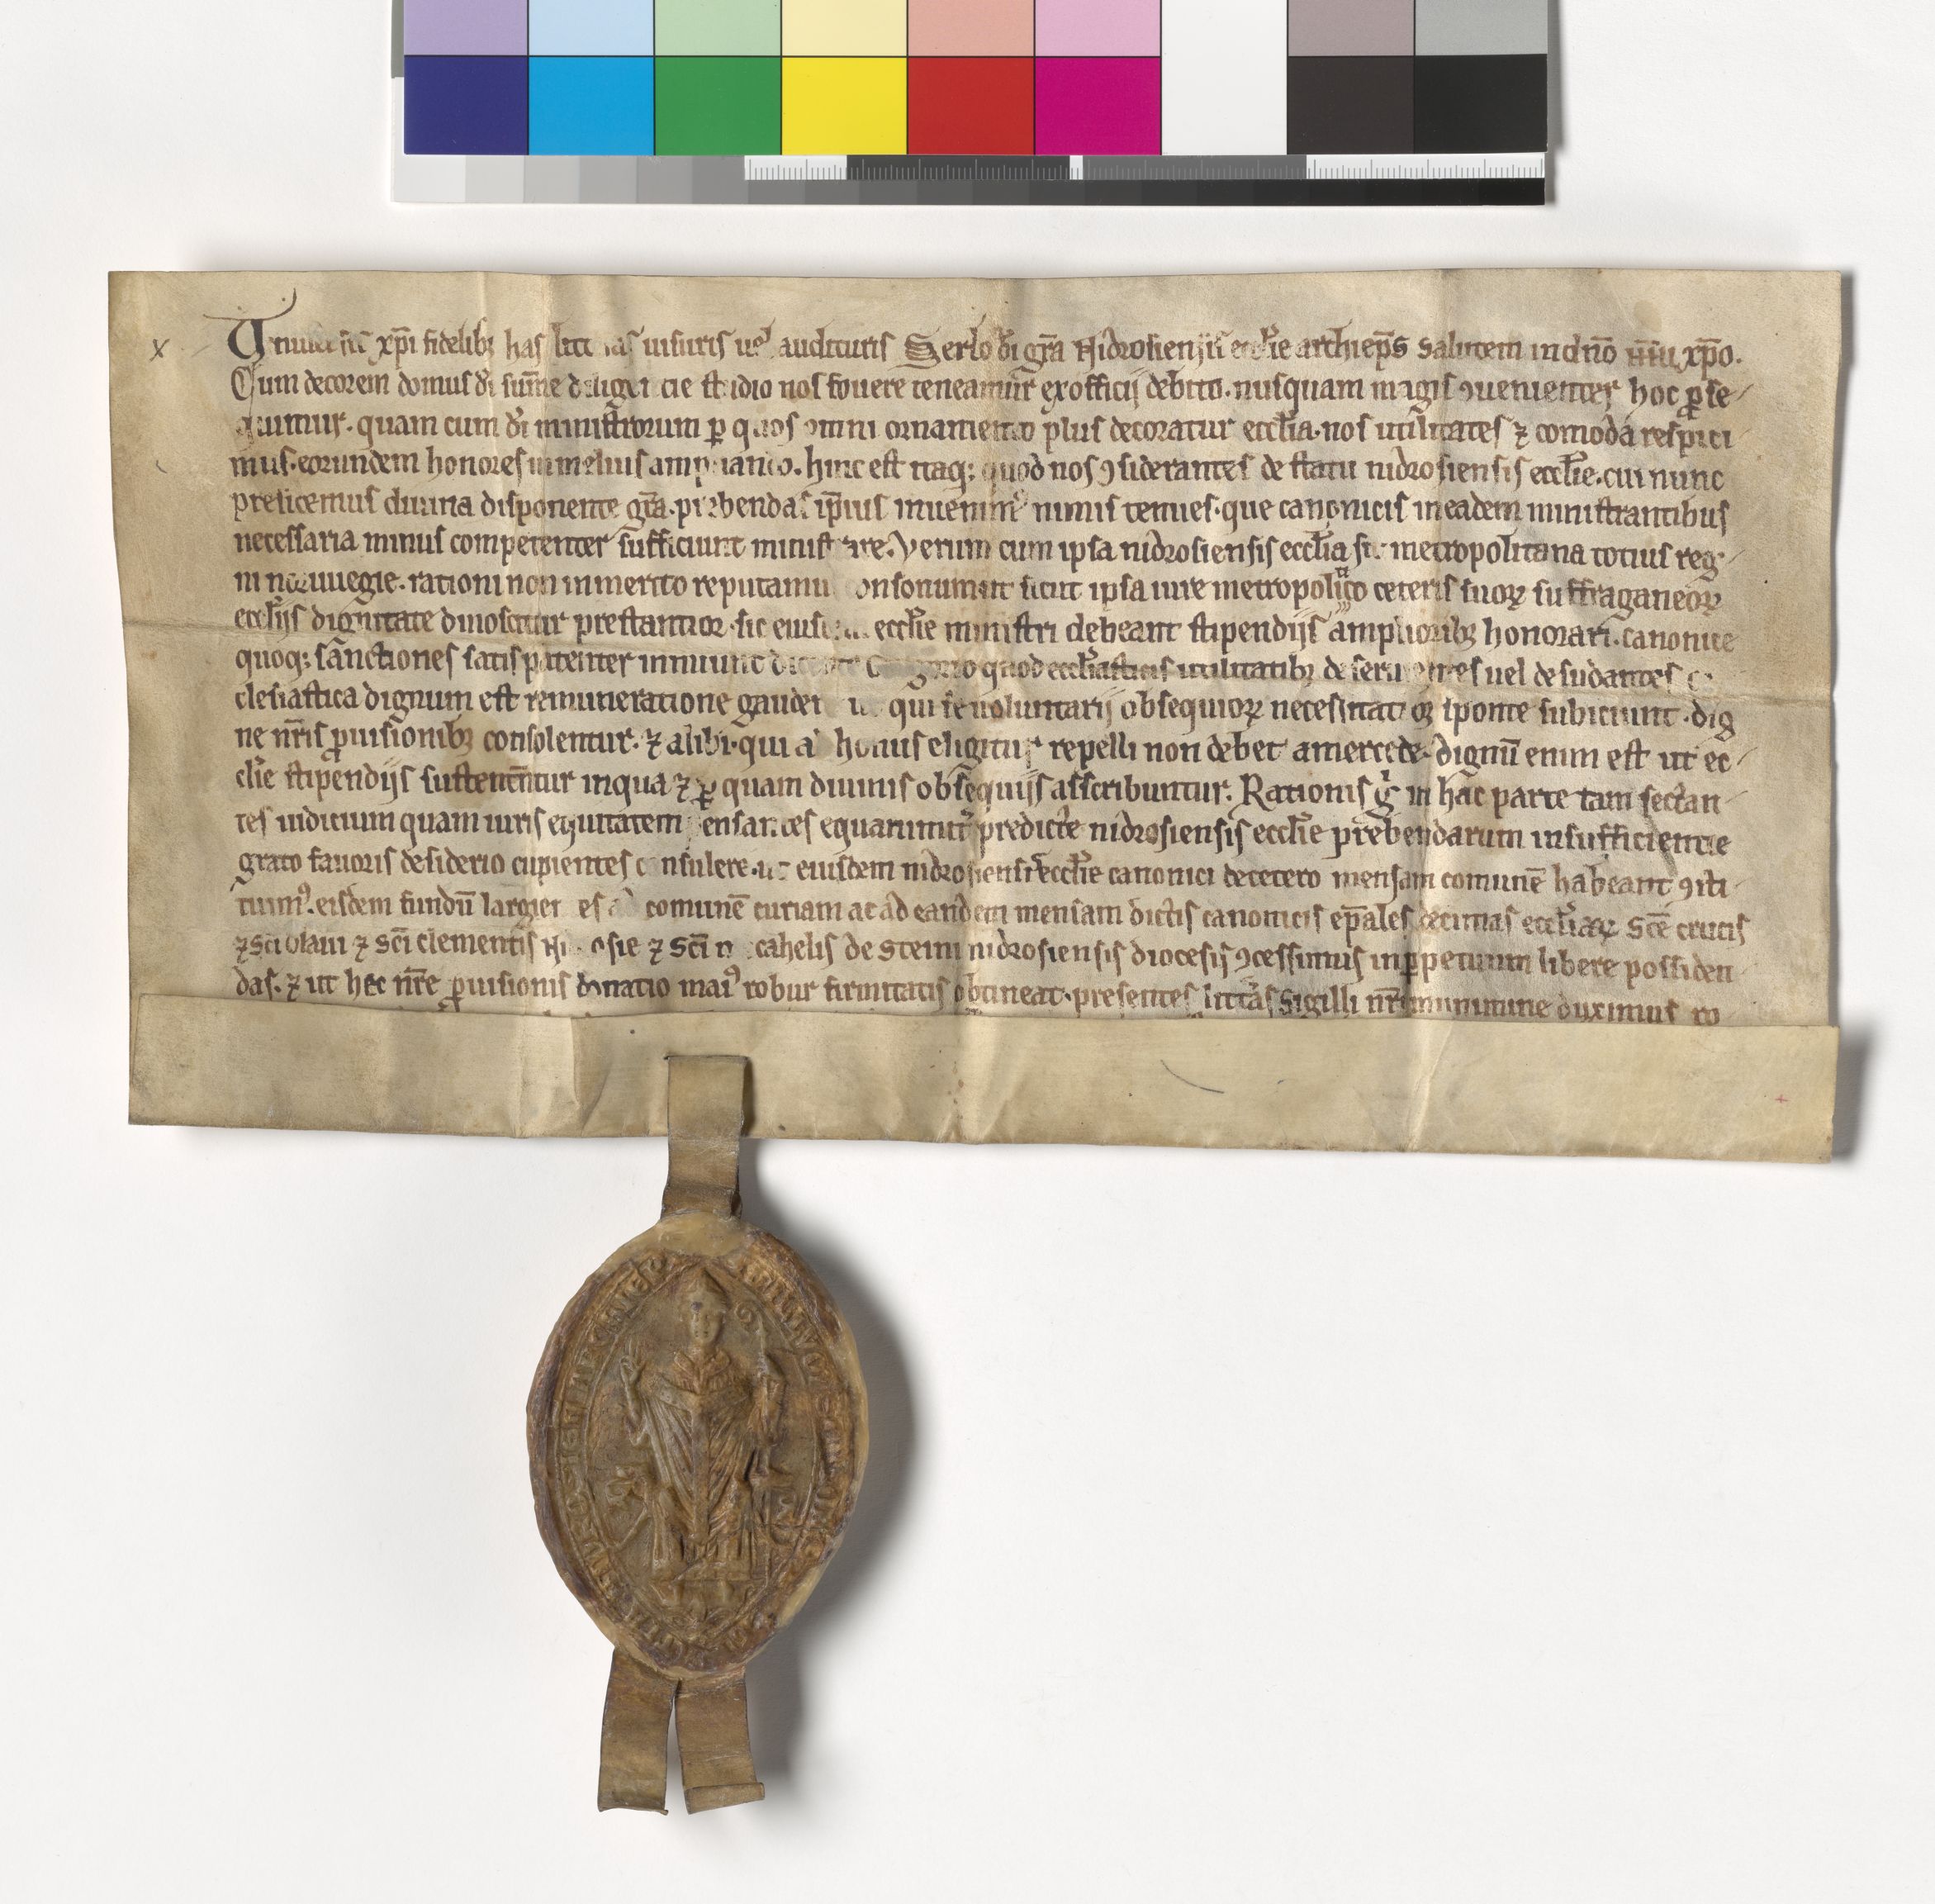 x
Uniuersis xp̄i fidelibꝫ has litteras uisuris uel audituris Serlo dī gr̄a Nidrosiensis eccl̄ie archiep̄s Salutem in dn̄o xp̄o.
Cum decorem domus dī sum̄e diligencie studio nos fouere teneamur ex officij debito. nusquam magis ꝯuenienter hoc ꝓse
quimur. quam cum dī ministrorum ꝑ quos omni ornamento plus decoratur eccl̄ia. nos utilitates ⁊ comoda respici
mus. eorundem honores in melius ampliando. hinc est itaqꝫ quod nos ꝯsiderantes de statu nidrosiensis eccl̄ie. cui nunc
presicemus diuina disponente gr̄a. prebendas ip̄ius inuenimꝰ nimis tenues. que canonicis in eadem ministrantibus
necessaria minus competenter sufficiunt ministrare. Verum cum ipsa nidrosiensis eccl̄ia sit metropolitana totius reg
ni noruuegie. rationi non inmerito reputamus consonum ut sicut ipsa iure metropolitico ceteris suoꝝ suffraganeoꝝ
eccl̄ijs dignitate dinoscitur prestantior. sic eiusdem eccl̄ie ministri debeant stipendijs amplioribꝫ honorari. canonice
quoqꝫ sanctiones satis patenter innuunt dicente Gregorio quod eccl̄iasticis utilitatibꝫ deseruientes uel desudantes ec
clesiastica dignum est remuneratione gaudere ut qui se uoluntarij obsequioꝝ necessitatibꝫ sponte subiciunt. dig
ne nr̄is ꝓuisionibꝫ consolentur. ⁊ alibi. qui ad honus eligitur repelli non debet a mercede. dignū enim est ut ec
cl̄ie stipendijs sustentētur in qua ⁊ ꝑ quam diuinis obsequijs asscribuntur. Rationis gͥ in hac parte tam sectan
tes iudicium quam iuris equitatem pensantes equanimitꝰ predicte nidrosiensis eccl̄ie prebendarum insufficientie
grato fauoris desiderio cupientes consulere. ut eiusdem nidrosiensis eccl̄ie canonici decetero mensam comunē habeant ꝯsti
tuimꝰ. eisdem fundū largientes ad comunē curiam ac ad eandem mensam dictis canonicis ep̄ales decimas eccl̄iaꝝ sc̄e crucis
⁊ sc̄i olaui ⁊ sc̄i clementis Nidrosie ⁊ sc̄i micahelis de steini nidrosiensis diocesis ꝯcessimus inꝑpetuum libere possiden
das. ⁊ ut hec nr̄e ꝓuisionis donatio maiꝰ robur firmitatis obtineat. presentes litteras sigilli nr̄i munimine duximus ro